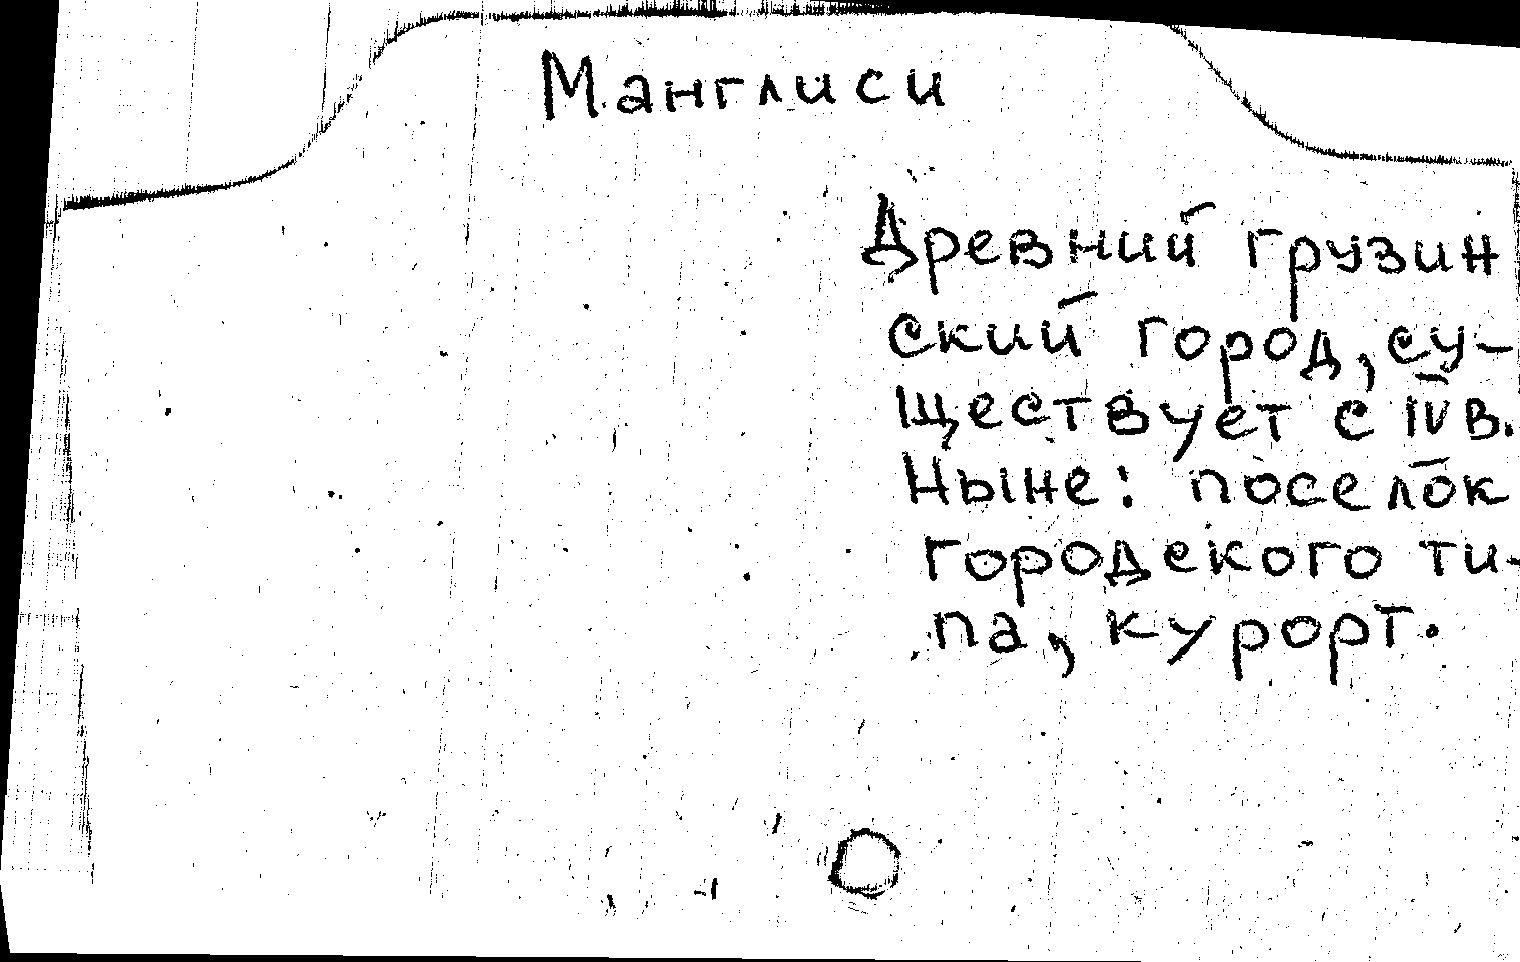 Манглиси
Древний грузин
ский город, су-
ществует с IV в.
Ныне: поселок
городского ти-
па, курорт.